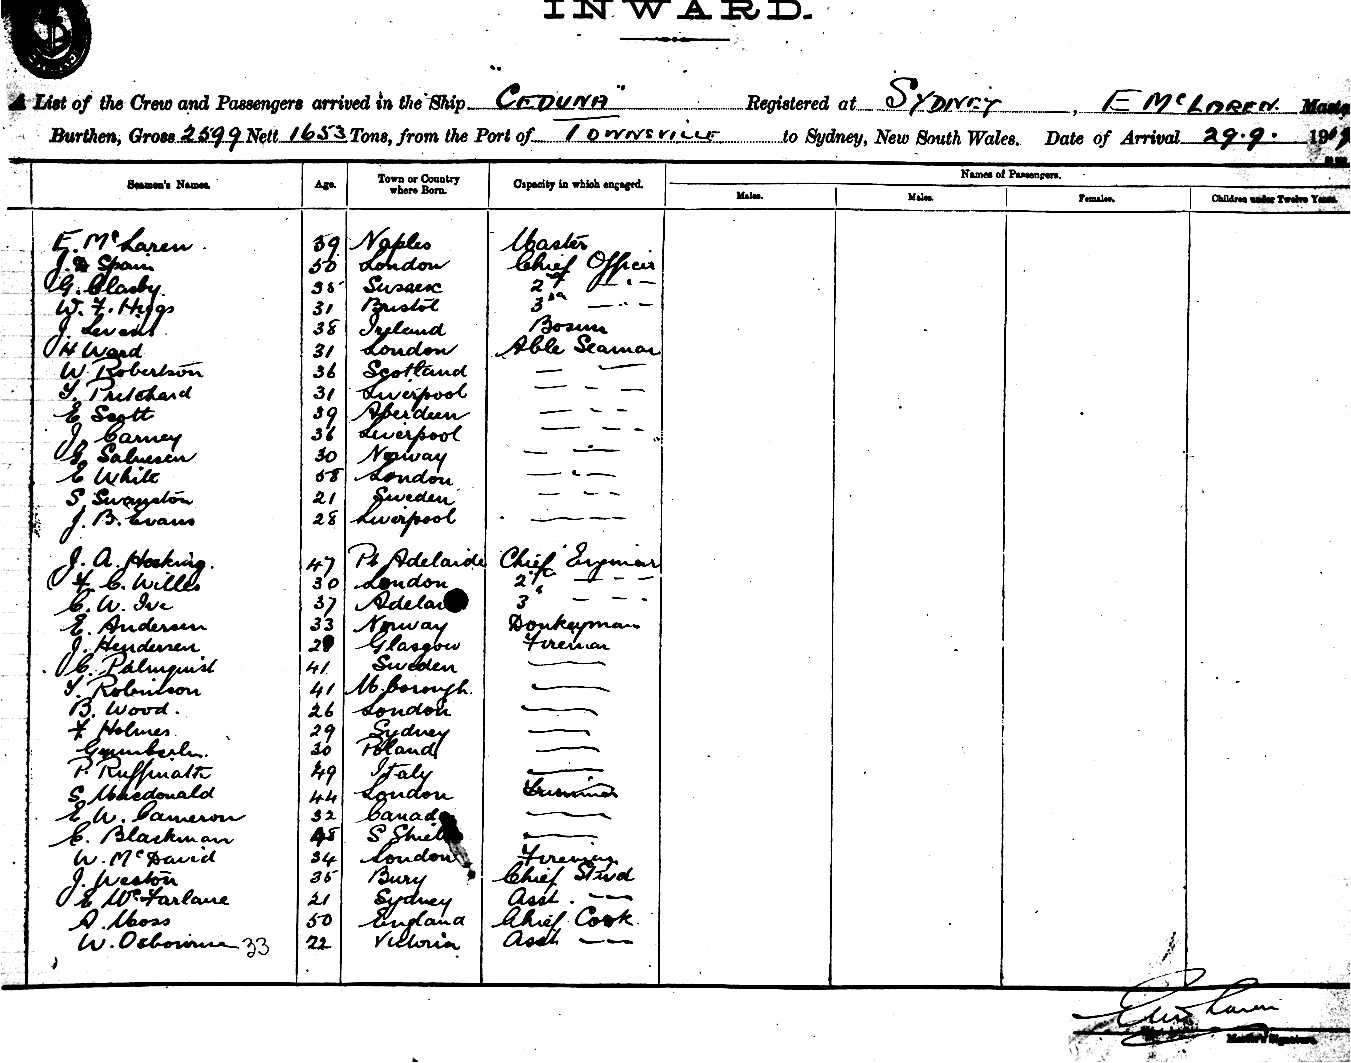 INWARD.
A List of the Crew and Passengers arrived in the Ship "CEDUNA" Registered at SYDNEY, E McLAREN. Master
Burthen, Gross 2599 Nett 1653 Tons, from the Port of TOWNSVILLE to Sydney, New South Wales. Date of Arrival 29.9. 19
Names of Passengers.
Seamen's Names. Age. Town or Country where Born. Capacity in which engaged. Males. Males. Females. Children under Twelve Years.
E. McLaren. 39 Naples Master
J. Spain 50 London Chief Officer
G. Clasby 35 Sussex 2nd — " —
W. F. Higgs 31 Bristol 3rd — " —
J. 38 Ireland Bosun
H Ward 31 London Able Seaman
W. Robertson 36 Scotland — —
T. Pritchard 31 Liverpool — — — —
E Scott 39 Aberdeen — - - —
J. Carney 36 Liverpool — — - —
G. Salvesen 30 Norway — —
E White 58 London — " —
S Swanston 21 Sweden — - - —
J. B. Evans 28 Liverpool — — —
J. A. Hosking. 47 Pt Adelaide Chief Engineer
F. C. Willes 30 London 2nd — - —
C. W. Ive 37 Adelai 3rd — - - -
E. Andersen 33 Norway Donkeyman
J. Hendersen 2 Glasgow Fireman
C. Palmquist 41 Sweden —
T. Robinson 41 M.borough. —
B. Wood. 26 London —
F Holmes 29 Sydney —
30 Poland —
P. 49 Italy —
S Macdonald 44 London Trimmer
E W. Cameron 32 Canad —
C. Blackman 48 S Shiel —
W. McDavid 34 London Fireman
J. Weston 35 Bury Chief Stwd
E McFarlane 21 Sydney Asst. — -
A. Moss 50 England Chief Cook
W. Osbourne 33 22 Victoria Asst — —
Master's Signature.